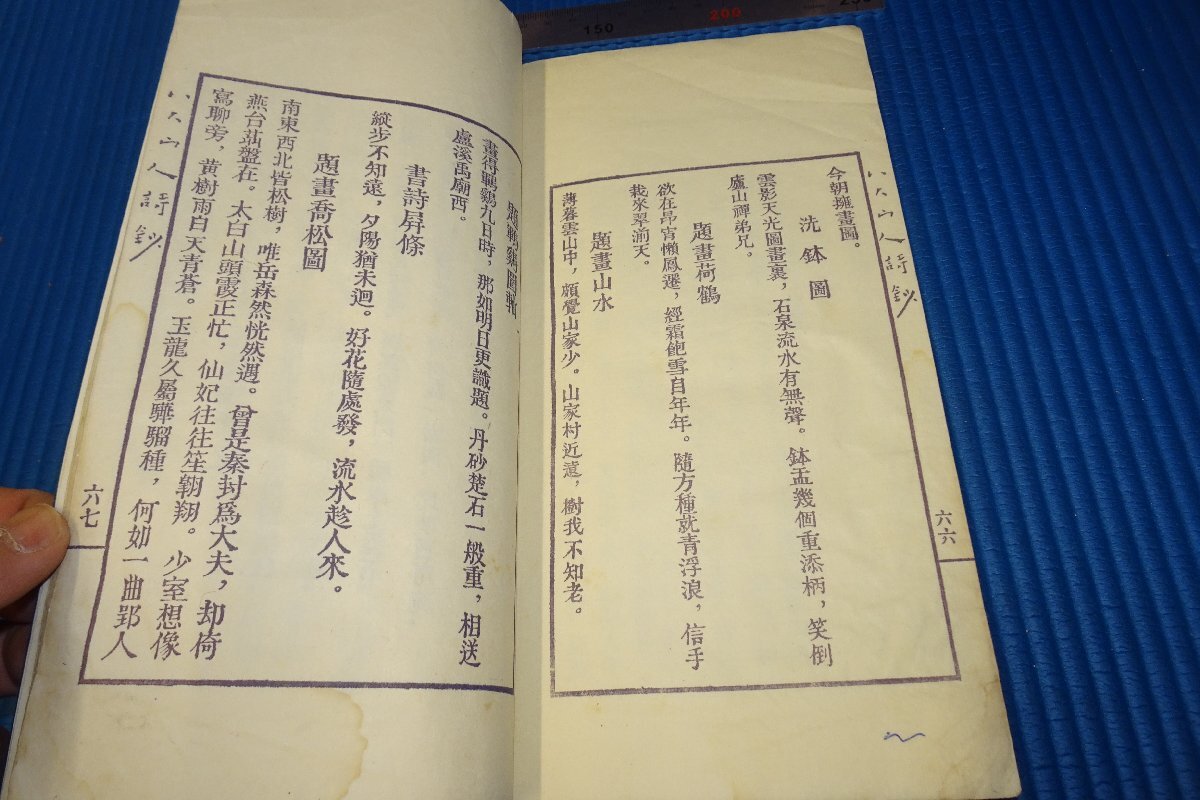 150
200
250
八大山人詩鈔
今朝擁畫圖。
洗鉢圖
雲影天光圖畫裏，石泉流水有無聲。鉢盂幾個重添柄，笑倒
廬山禪弟兄。
題畫荷鶴
欲在昂宵懶鳳遷，經霜飽雪自年年。隨方種就青浮浪，信手
栽來翠湔天。
題畫山水
薄暮雲山中，頗覺山家少。山家村近遠，樹我不知老。
六六
題鸜鵒圖軸
畫得鸜鵒九日時，那如明日更識題。丹砂楚石一般重，相送
盧溪禹廟西。
書詩屏條
縱步不知遠，夕陽猶未迴。好花隨處發，流水趁人來。
題畫喬松圖
南東西北皆松樹，唯岳森然恍然遇。曾是秦封爲大夫，却倚
燕台茁盤在。太白山頭霞正忙，仙妃往往笙翱翔。少室想像
寫聊旁，黃樹雨白天青蒼。玉龍久屬驊騮種，何如一曲郢人
八大山人詩鈔
六七